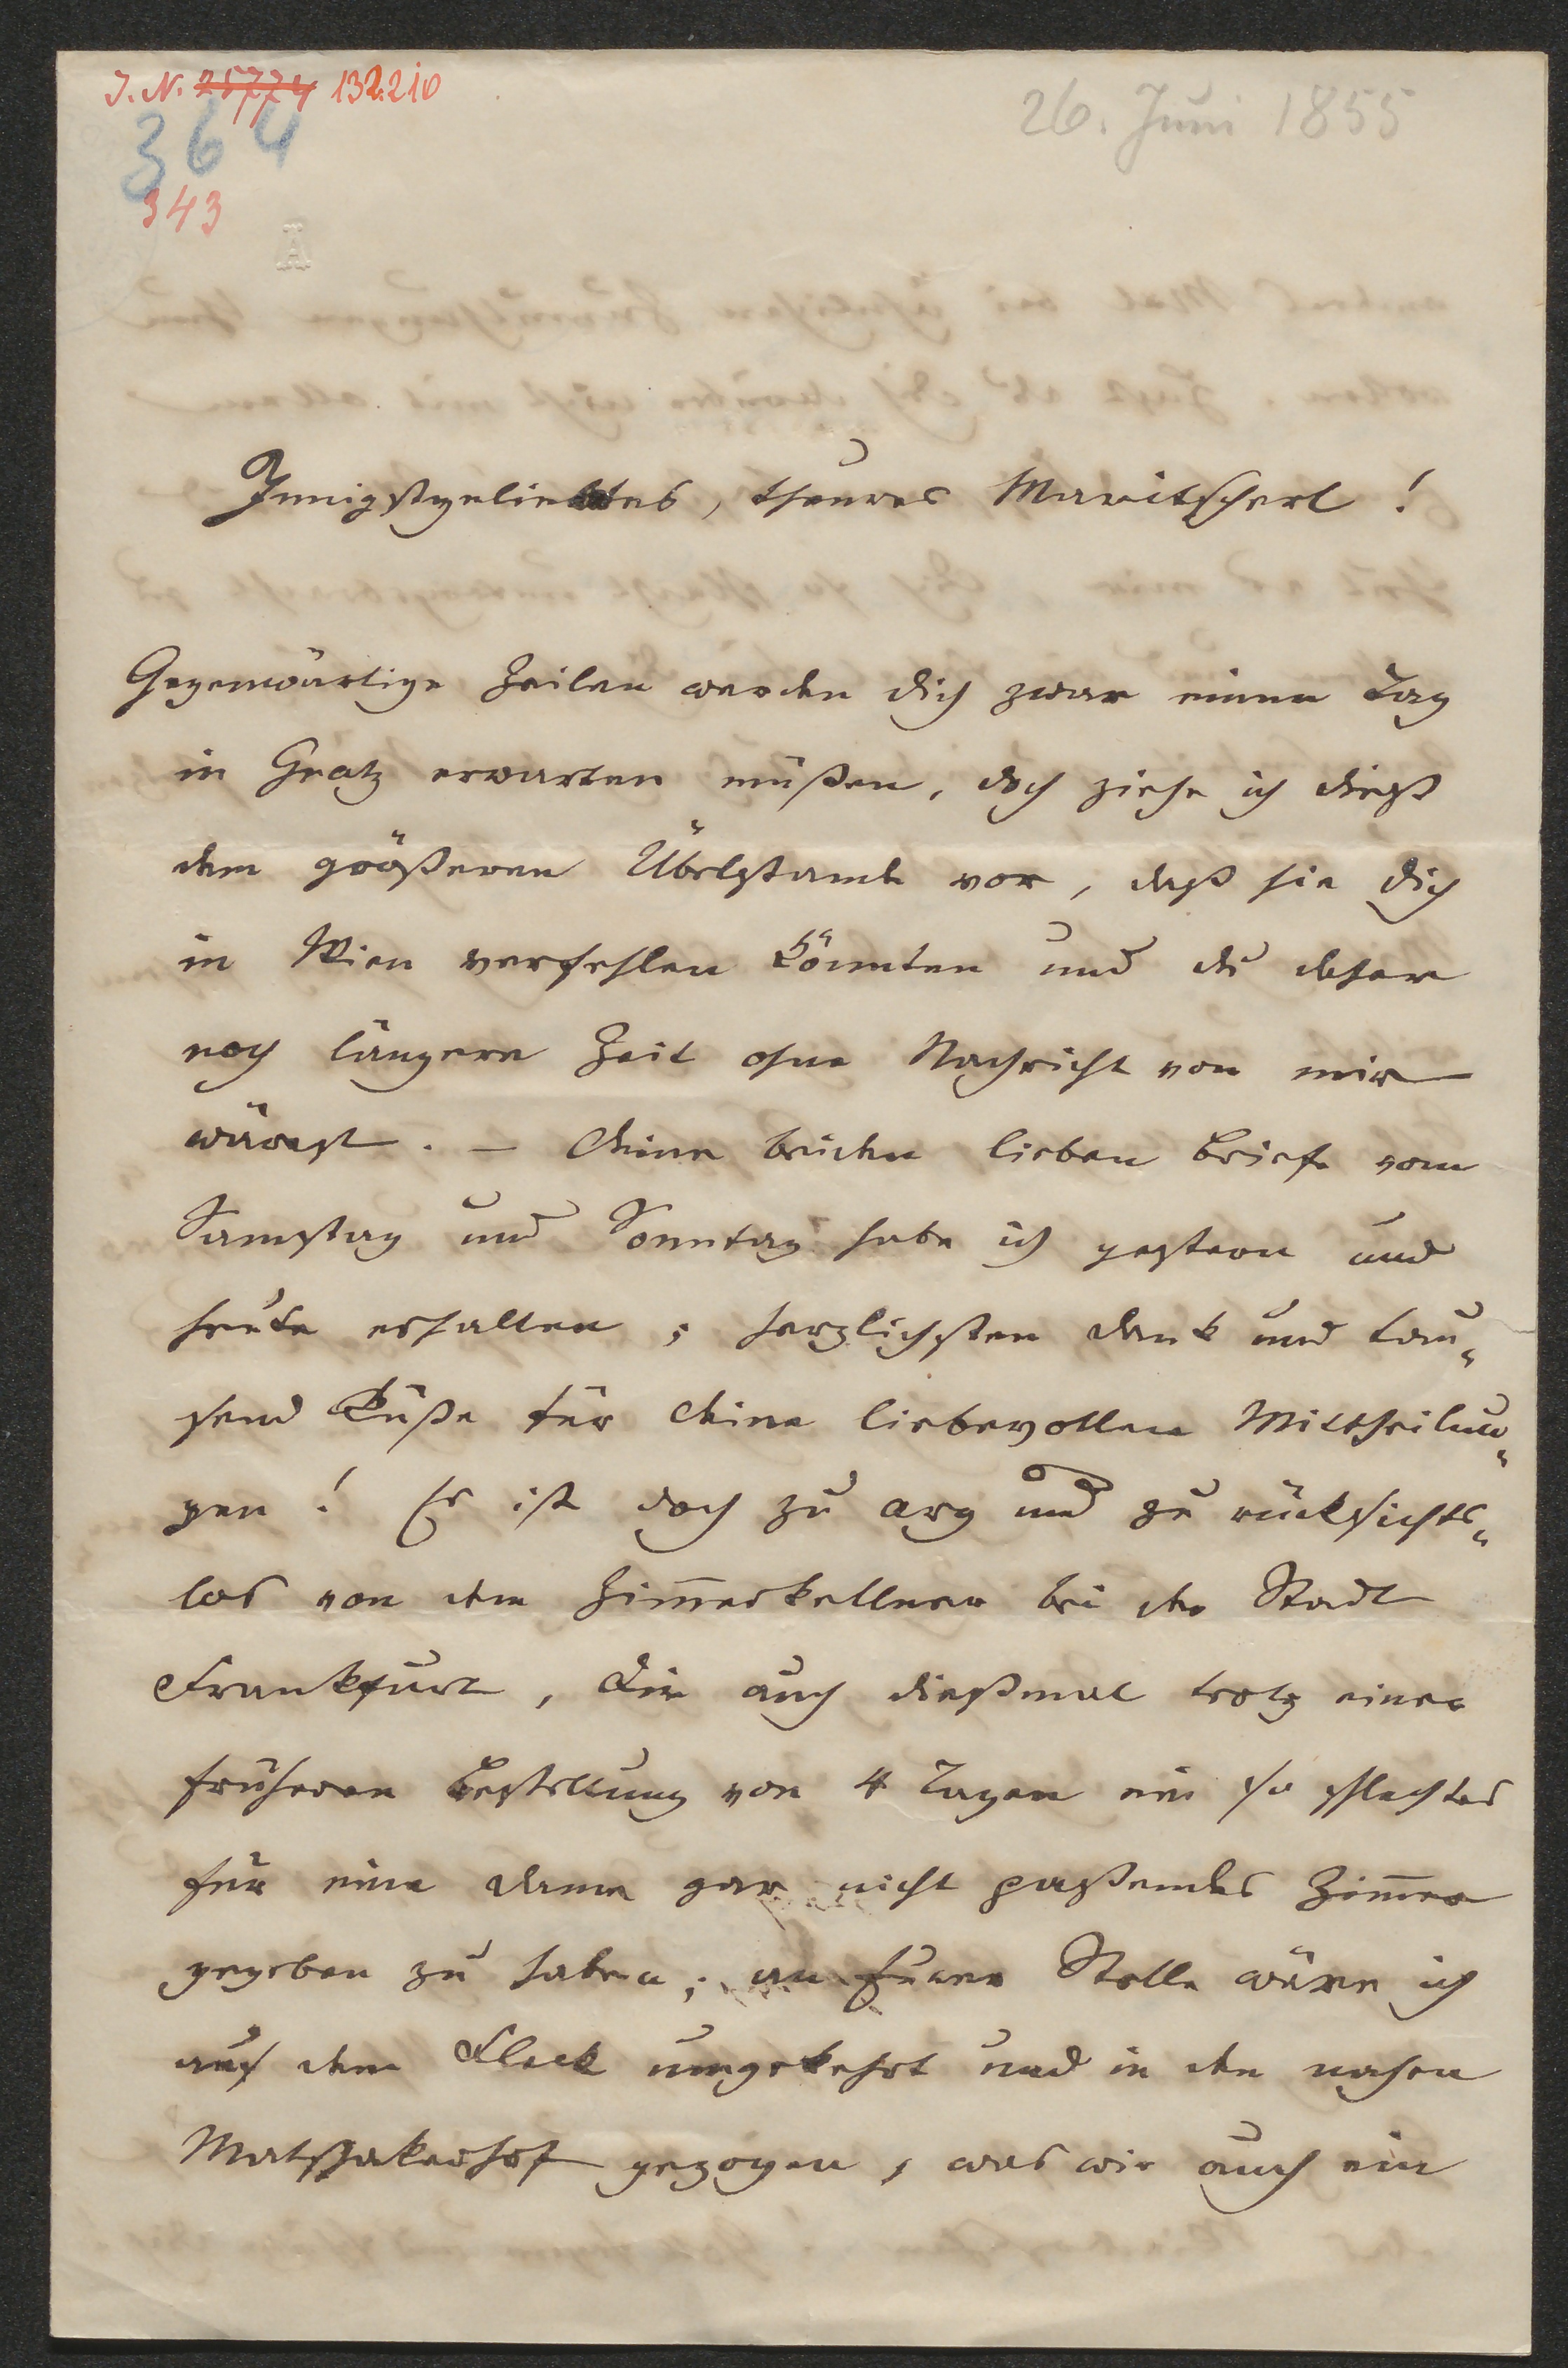 J. N. 25774 132.210
26. Juni 1855
364
343
A
Innigstgeliebtes, theures Maritscherl!
Gegenwärtige Zeilen werden dich zwar einen Tag
in Gratz erwarten müßen, doch ziehe ich dieß
dem größeren Übelstande vor, daß sie dich
in Wien verfehlen könnten und du daher
noch längere Zeit ohne Nachricht von mir
wärest. – Deine beiden lieben Briefe vom
Samstag und Sonntag habe ich gestern und
heute erhalten; herzlichsten Dank und tau„
send Küße für Deine liebevollen Mittheilun„
gen! Es ist doch zu arg und zu rücksichts„
los von dem Zim̅erkellner bei der Stadt
Frankfurt, Dir auch dießmal trotz einer
früheren Bestellung von 4 Tagen ein so schlechtes
für eine Dame gar nicht paßendes Zim̅er
gegeben zu haben; an Eurer Stelle wäre ich
auf dem Fleck umgekehrt und in den nahen
Matschakerhof gezogen, was wir auch ein